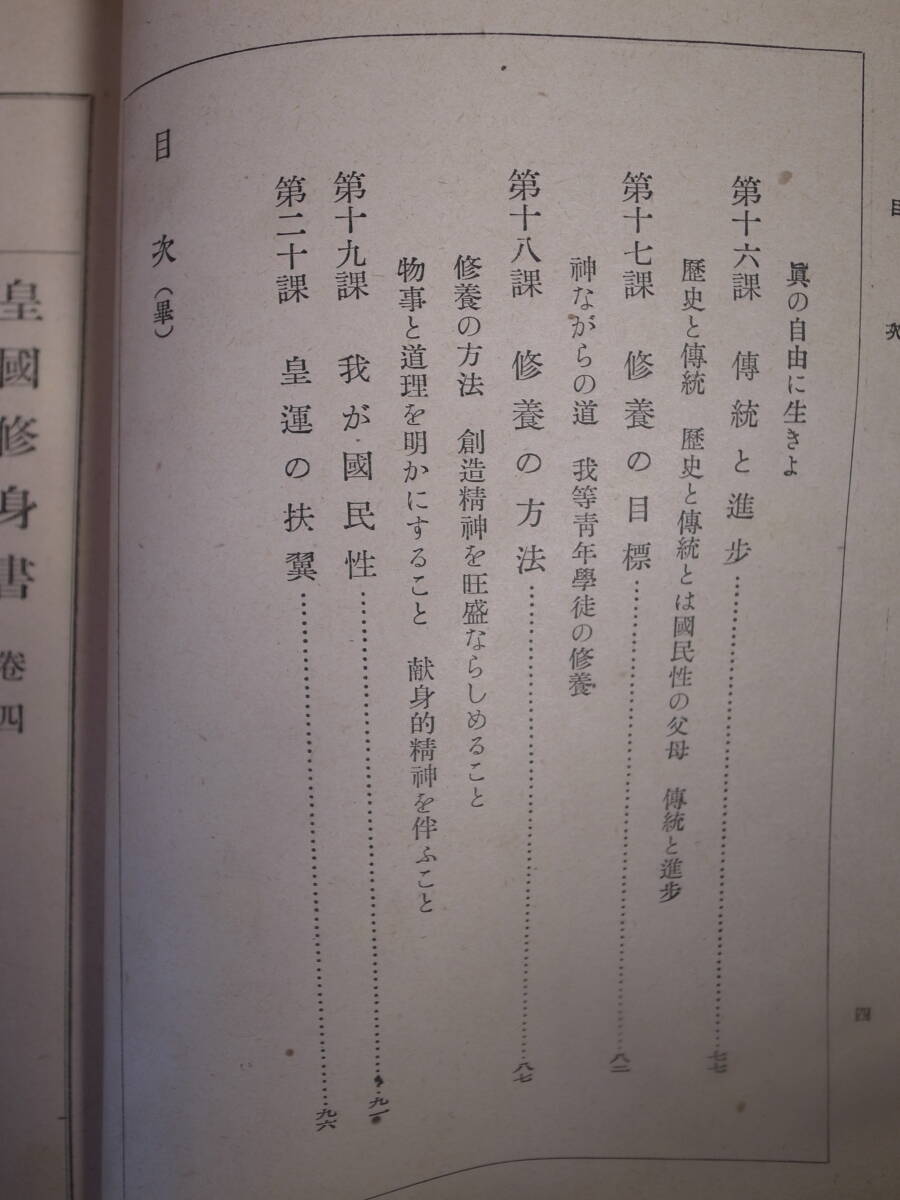 目次
四
眞の自由に生きよ
第十六課 傳統と進步……七七
歷史と傳統 歷史と傳統とは國民性の父母 傳統と進步
第十七課 修養の目標……八二
神ながらの道 我等靑年學徒の修養
第十八課 修養の方法……八七
修養の方法 創造精神を旺盛ならしめること
物事と道理を明かにすること 献身的精神を伴ふこと
第十九課 我が國民性……九一
第二十課 皇運の扶翼……九六
目次(畢)
皇國修身書 卷四